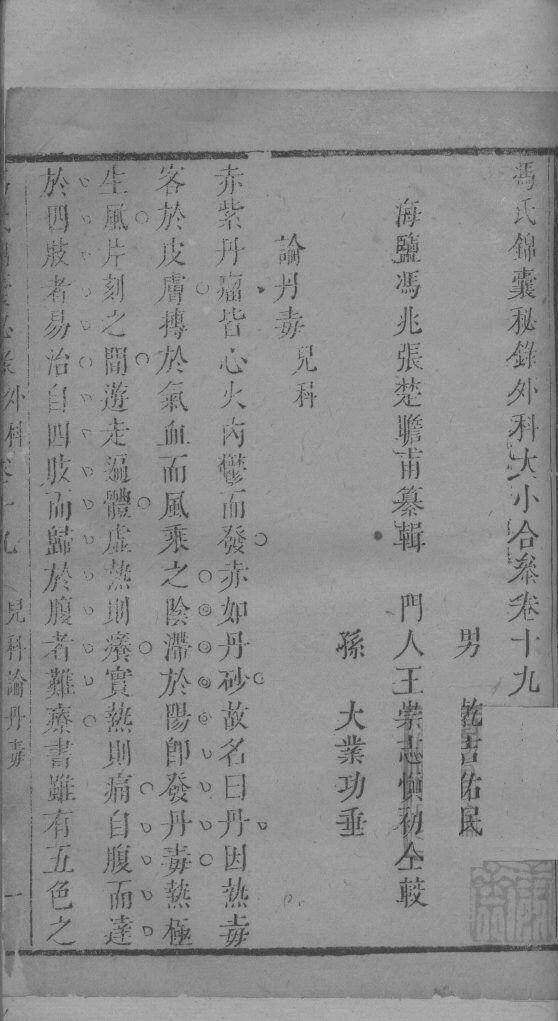 馮氏錦囊秘錄外科大小合叅卷十九
男 乾吉佑民
海鹽馮兆張楚瞻甫纂輯 門人王崇志慎初仝較
孫 大業功垂
論丹毒 兒科
赤紫丹瘤皆心火內鬱而發赤如丹砂故名曰丹因熱毒
客於皮膚摶於氣血而風乘之陰滯於陽卽發丹毒熱極
生風片刻之間遊走遍體虛熱則癢實熱則痛自腹而達
於四肢者易治自四肢而歸於腹者難療書雖有五色之
外科卷十九 兒科論丹毒 一